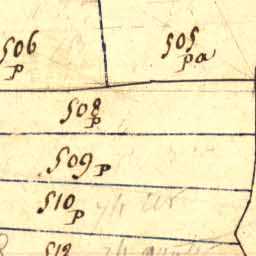 506
p
505
pa
508
p
509 p
510
p
512